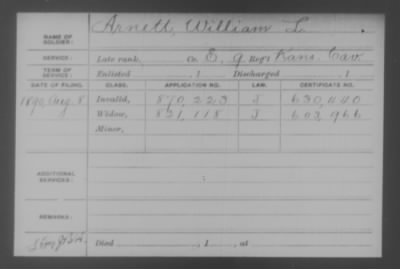 NAME OF SOLDIER: Arnett, William L.
SERVICE: Late rank, Co. E, 9 Reg't Kans. Cav.
TERM OF SERVICE: Enlisted , 1 Discharged , 1
DATE OF FILING. CLASS. APPLICATION NO. LAW. CERTIFICATE NO.
1890, Aug. 8. Invalid, 870,223 J 630,440
Widow, 821,118 J 603,966
Minor,
ADDITIONAL SERVICES:
REMARKS:
Died , 1 , at